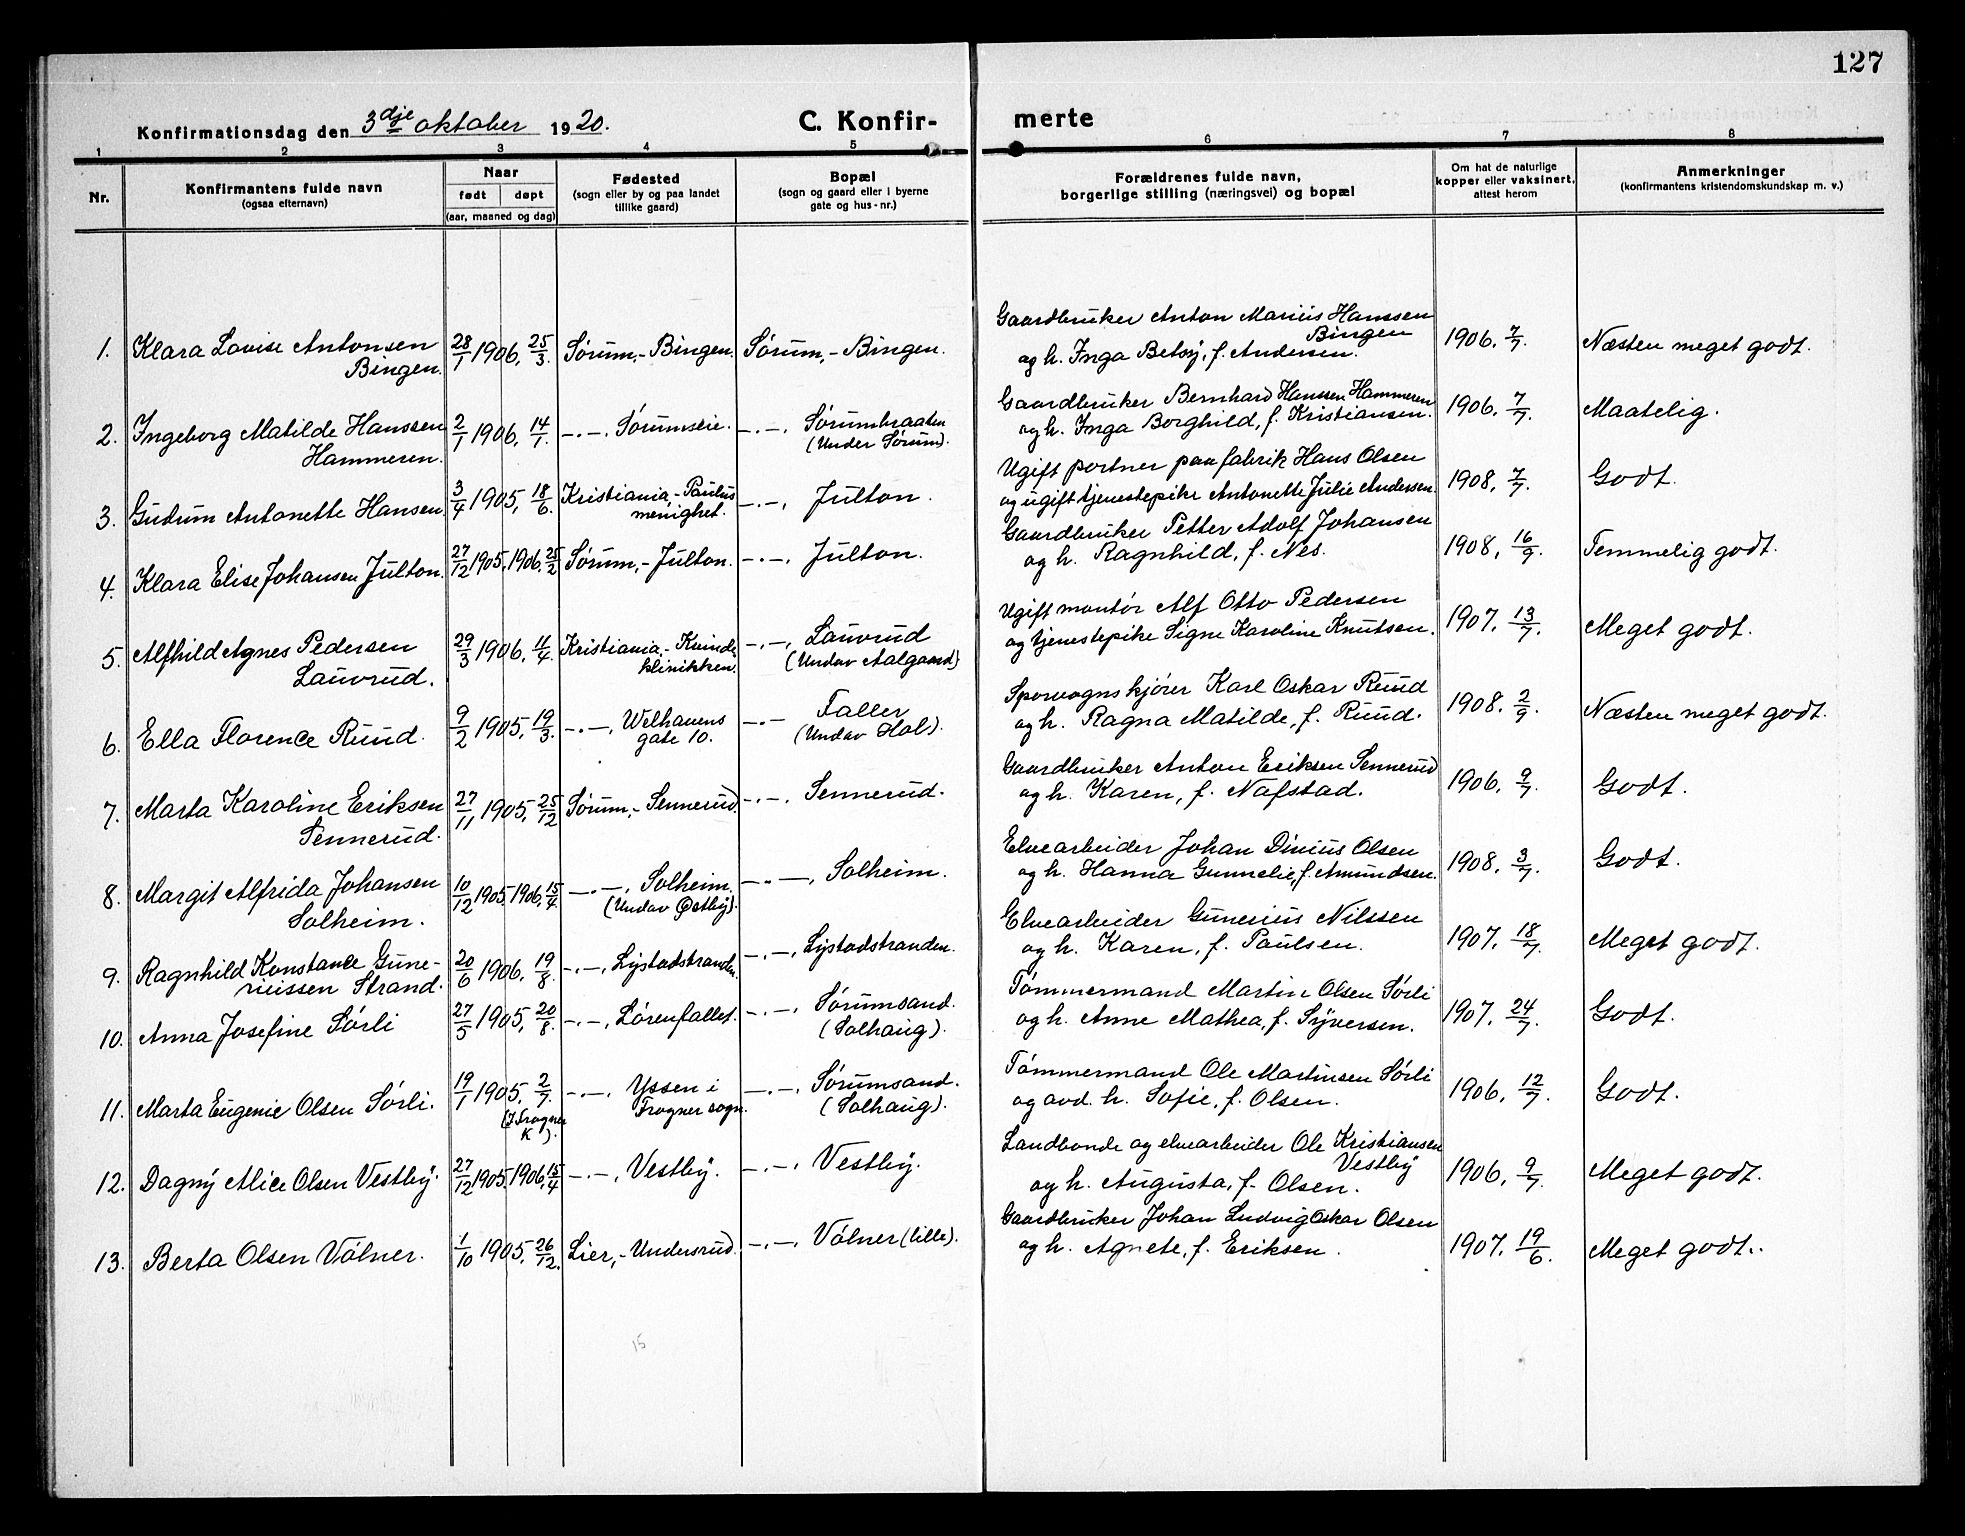 127
Konfirmationsdag den 3dje oktober 1920.
C. Konfirmerte
1 2 3 4 5 6 7 8
Nr.
Konfirmantens fulde navn
(ogsaa efternavn)
Naar
født døpt
(aar, maaned og dag)
Fødested
(sogn eller by og paa landet
tillike gaard)
Bopæl
(sogn og gaard eller i byerne
gate og hus-nr.)
Forældrenes fulde navn,
borgerlige stilling (næringsvei) og bopæl
Om hat de naturlige
kopper eller vaksinert,
attest herom
Anmerkninger
(konfirmantens kristendomskundskap m. v.)
1. Klara Lovise Antonsen
Bingen.
28/1 1906, 25/3.
Sørum,- Bingen.
Sørum,- Bingen.
Gaardbruker Anton Marius Hanssen
Bingen
og h. Inga Betsy, f. Andersen.
1906, 7/7.
Næsten meget godt.
2. Ingeborg Matilde Hanssen
Hammeren.
2/1 1906, 14/1.
-.-. Sørumseie.
-.-. Sørumbraaten
(Under Sørum).
Gaardbruker Bernhard Hanssen Hammeren
og h. Inga Borghild, f. Kristiansen.
1906, 7/7.
Maatelig.
3. Gudrun Antonette Hansen.
3/4 1905, 18/6.
Kristiania,- Paulus
menighet.
-.-, Julton.
Ugift portner paa fabrik Hans Olsen
og ugift tjenestepike Antonette Julie Andersen.
1908, 7/7.
Godt.
4. Klara Elise Johansen Julton.
27/12 1905, 1906, 25/2
Sørum,- Julton.
-.-, Julton.
Gaardbruker Petter Adolf Johansen
og h. Ragnhild, f. Nes.
1908, 16/9.
Temmelig godt.
5. Alfhild Agnes Pedersen
Lauvrud.
29/3 1906, 11/4.
Kristiania,- Kvinde
klinikken.
-.-, Lauvrud
(Undav Aalgaard)
Ugift montør Alf Otto Pedersen
og tjenestepike Signe Karoline Knutsen.
1907, 13/7.
Meget godt.
6. Ella Florence Ruud.
9/2 1905, 19/3.
-.-, Welhavens
gate 10.
-.- Faller
(Undav Hol).
Sporvognskjører Karl Oskar Ruud
og h. Ragna Matilde, f. Ruud.
1908, 2/9.
Næsten meget godt.
7. Marta Karoline Eriksen
Sennerud.
27/11 1905, 25/12
Sørum,- Sennerud.
-.-, Sennerud.
Gaardbruker Anton Eriksen Sennerud
og h. Karen, f. Nafstad.
1906, 9/7.
Godt.
8. Margit Alfrida Johansen
Solheim.
10/12 1905. 1906, 15/4.
-.-, Solheim.
(Undav Østby).
-.-, Solheim.
Elvearbeider Johan Dinius Olsen
og h. Hanna Gunnelie, f. Amundsen.
1908, 3/7.
Godt.
9. Ragnhild Konstance Gune-
riussen Strand.
20/6 1906, 19/8.
-.-, Lystadstranden.
-.-, Lystadstranden.
Elvearbeider Gunerius Nilssen
og h. Karen, f. Paulsen.
1907, 18/7.
Meget godt.
10. Anna Josefine Sørli
27/5 1905, 20/8.
-.-, Lørenfallet.
-.-, Sørumsand.
(Solhaug).
Tømmermand Martin Olsen Sørli
og h. Anne Mathea, f. Syversen.
1907, 24/7.
Godt.
11. Marta Eugenie Olsen Sørli.
19/1 1905, 2/7.
(I Frogner
K).
-.-, Yssen i
Frogner sogn.
-.-, Sørumsand.
(Solhaug).
Tømmermand Ole Martinsen Sørli
og avd. h. Sofie, f. Olsen.
1906, 12/7.
Godt.
12. Dagny Alice Olsen Vestby.
27/12 1905. 1906, 15/4
-.-, Vestby.
-.-, Vestby.
Landbonde og elvearbeider Ole Kristiansen
Vestby
og h. Augusta, f. Olsen.
1906, 9/7.
Meget godt.
13. Berta Olsen Vølner.
1/10 1905, 26/12.
Lier,- Undersrud.
-.-, Vølner (lille).
Gaardbruker Johan Ludvig Oskar Olsen
og h. Agnete, f. Eriksen.
1907, 19/6.
Meget godt.
15